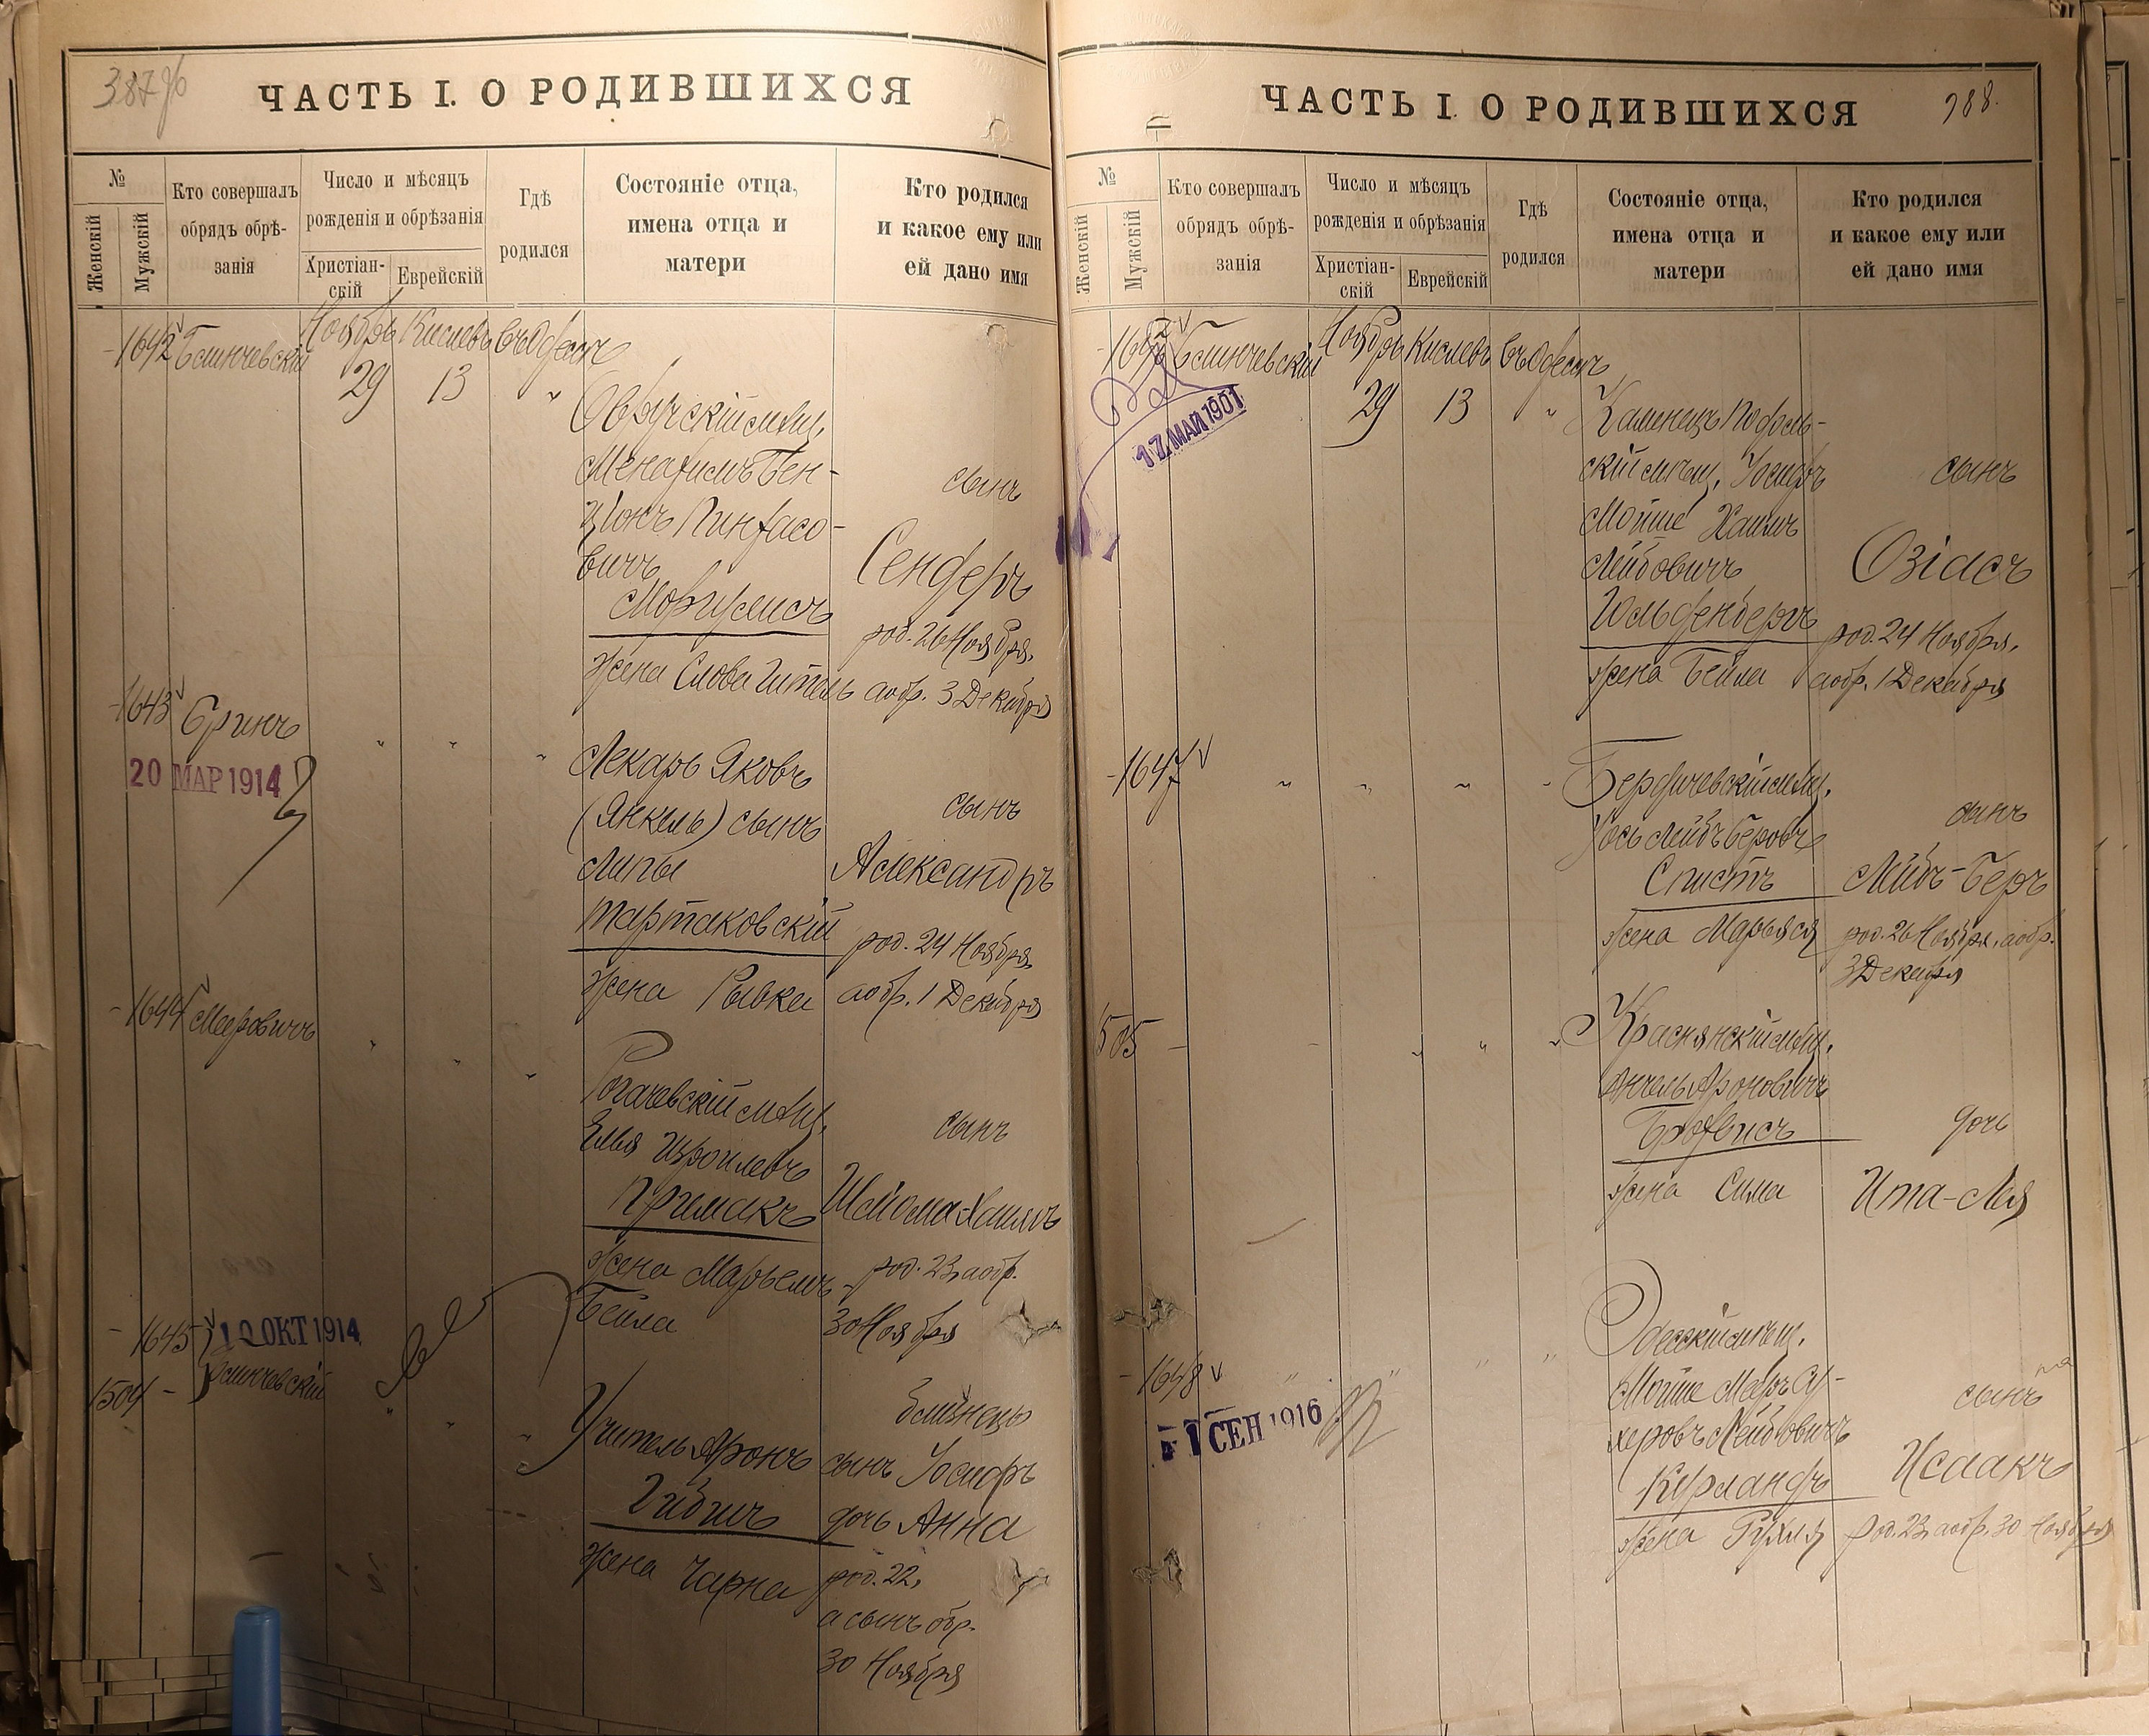 387об
ЧАСТЬ I. О РОДИВШИХСЯ
№
Женскій
Мужскій
Кто совершалъ
обрядъ обрѣ-
занія
Число и мѣсяцъ
рожденія и обрѣзанія
Христіан-
скій
Еврейскій
Гдѣ
родился
Состояніе отца,
имена отца и
матери
Кто родился
и какое ему или
ей дано имя
1642
Ноябрь Кислевъ въ Одессѣ
29 13 "
Овручскій мѣщ.
Бен-
ціонъ Пинхасо-
вичъ
жена Слова Гитель
сынъ
Сендеръ
род. 26 Ноября,
а обр. 3 Декабря
1643
20 МАР 1914
" " "
Лекарь Яковъ
(Янкель) сынъ
Липы
Тартаковскій
жена Рывка
сынъ
Александръ
род. 24 Ноября,
а обр. 1 Декабря
1644 Мееровичъ
" " "
Рогачевскій мѣщ.
Елья Изроилевъ
Примакъ
жена Марьемъ
Бейла
сынъ
Шлойма-Хаимъ
род. 23, а обр.
30 Ноября
1645
1504 -
12 ОКТ 1914
" " "
Учитель Аронъ
жена Чарна
близнецы
сынъ Іосифъ
дочь Анна
род. 22,
а сынъ обр.
30 Ноября
ЧАСТЬ I. О РОДИВШИХСЯ
388.
№
Женскій
Мужскій
Кто совершалъ
обрядъ обрѣ-
занія
Число и мѣсяцъ
рожденія и обрѣзанія
Христіан-
скій
Еврейскій
Гдѣ
родился
Состояніе отца,
имена отца и
матери
Кто родился
и какое ему или
ей дано имя
Ноябрь Кислевъ въ Одессѣ
29 13 "
17 МАЙ 1901
Каменецъ Подоль-
скій мѣщ. Іосифъ
Мойше Хаимъ
Лейбовичъ
Гольденбергъ
жена Бейла
сынъ
Озіасъ
род. 24 Ноября,
а обр. 1 Декабря
1647
" " " "
Бердичевскій мѣщ.
Іось Лейбъ Беровъ
Спистъ
жена Марьяся
сынъ
Лейбъ-Беръ
род. 26 Ноября, а обр.
3 Декабря
1505 -
- " " "
Краснянскій мѣщ.
Ароновичъ
жена Сима
дочь
Ита-Лея
1648
" " " "
1 СЕН 1916
Одесскій мѣщ.
Мойше Меер Су-
херовъ Лейбовичъ
Курландъ
жена Рухля
сынъ
Исаакъ
род. 23, а обр. 30 Ноября